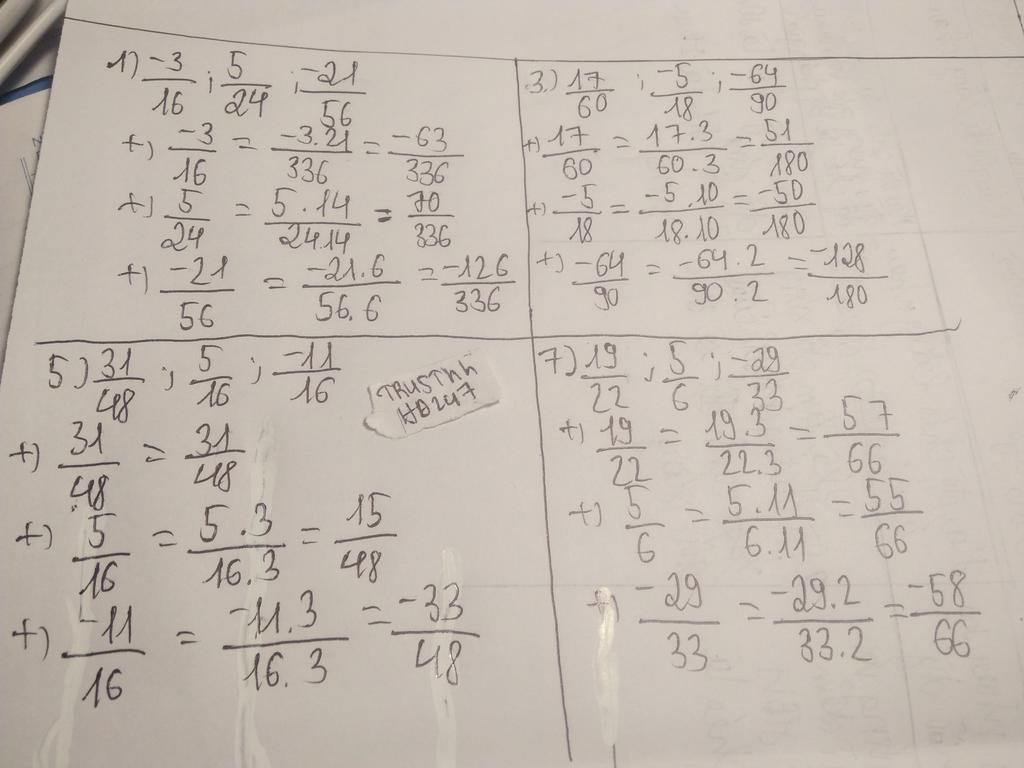 1) -3/16 ; 5/24 ; -21/56
+) -3/16 = -3.21/336 = -63/336
+) 5/24 = 5.14/24.14 = 70/336
+) -21/56 = -21.6/56.6 = -126/336
3.) 17/60 ; -5/18 ; -64/90
+) 17/60 = 17.3/60.3 = 51/180
+) -5/18 = -5.10/18.10 = -50/180
+) -64/90 = -64.2/90.2 = -128/180
5) 31/48 ; 5/16 ; -11/16
+) 31/48 = 31/48
+) 5/16 = 5.3/16.3 = 15/48
+) -11/16 = -11.3/16.3 = -33/48
TRUSTNN
HD247
7) 19/22 ; 5/6 ; -29/33
+) 19/22 = 19.3/22.3 = 57/66
+) 5/6 = 5.11/6.11 = 55/66
+) -29/33 = -29.2/33.2 = -58/66